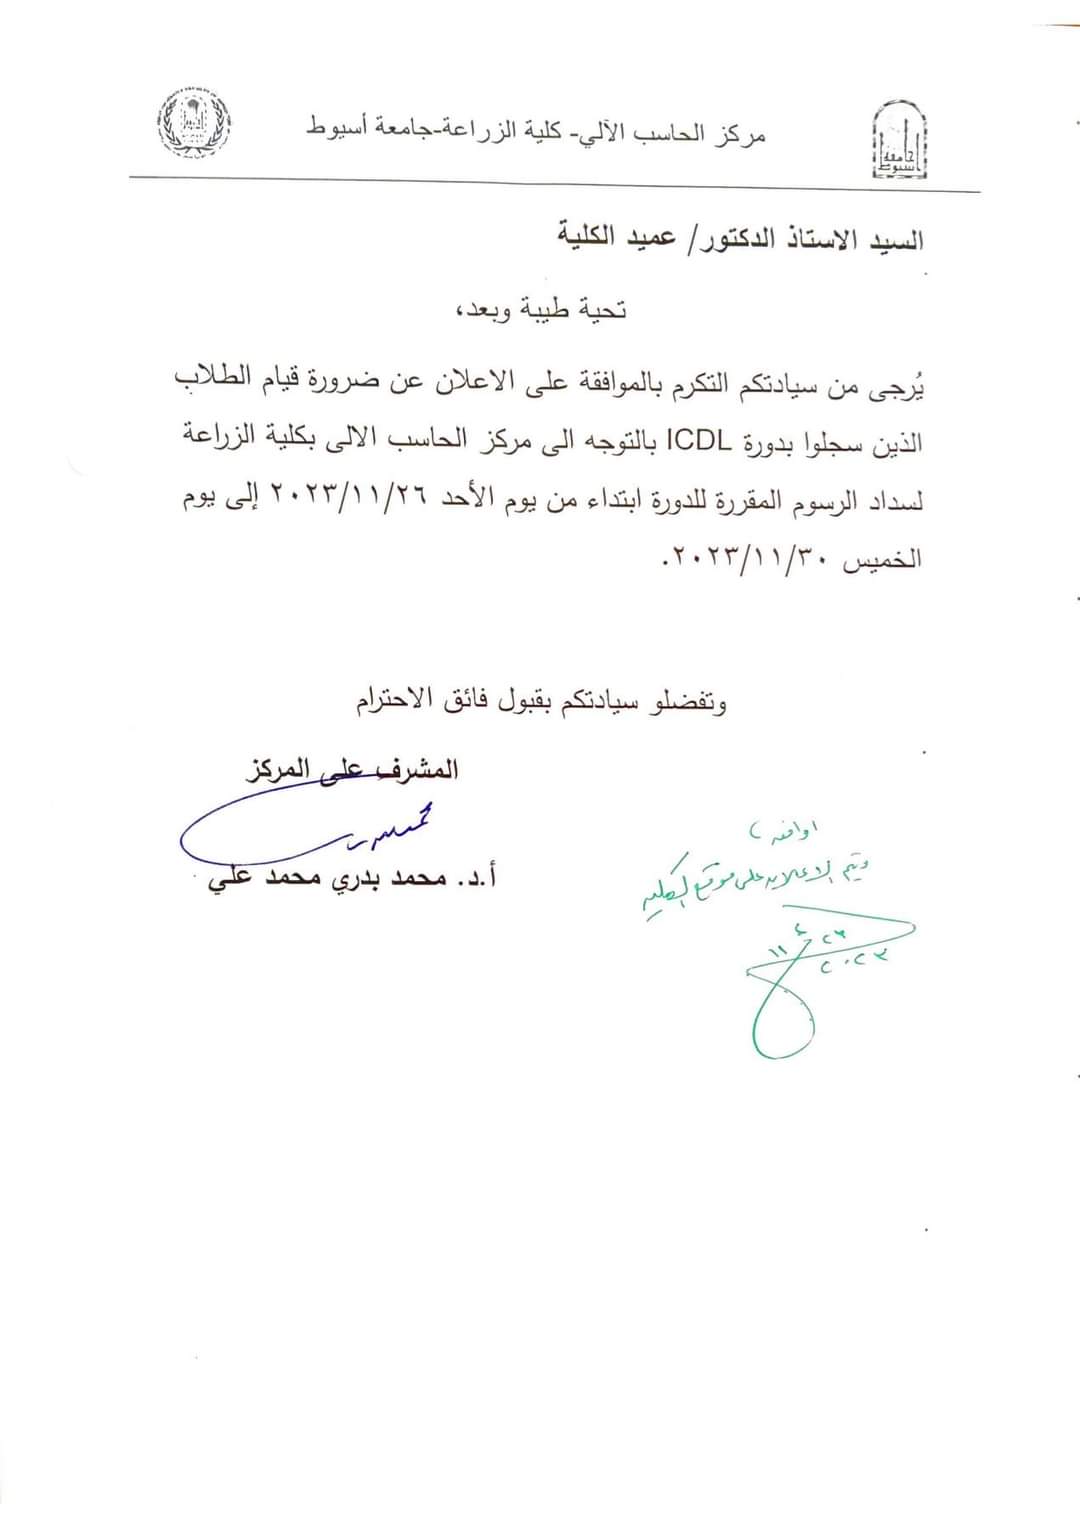 مركز الحاسب الآلي- كلية الزراعة-جامعة أسيوط
جامعة
أسيوط
السيد الاستاذ الدكتور/ عميد الكلية
تحية طيبة وبعد،
يُرجى من سيادتكم التكرم بالموافقة على الاعلان عن ضرورة قيام الطلاب
الذين سجلوا بدورة ICDL بالتوجه الى مركز الحاسب الالى بكلية الزراعة
لسداد الرسوم المقررة للدورة ابتداء من يوم الأحد ٢٠٢٣/١١/٢٦ إلى يوم
الخميس ٢٠٢٣/١١/٣٠.
وتفضلو سيادتكم بقبول فائق الاحترام
المشرف على المركز
أ.د. محمد بدري محمد علي
اوافق
ويتم الاعلان على موقع الكلية
٢٦
١١
٢٠٢٣